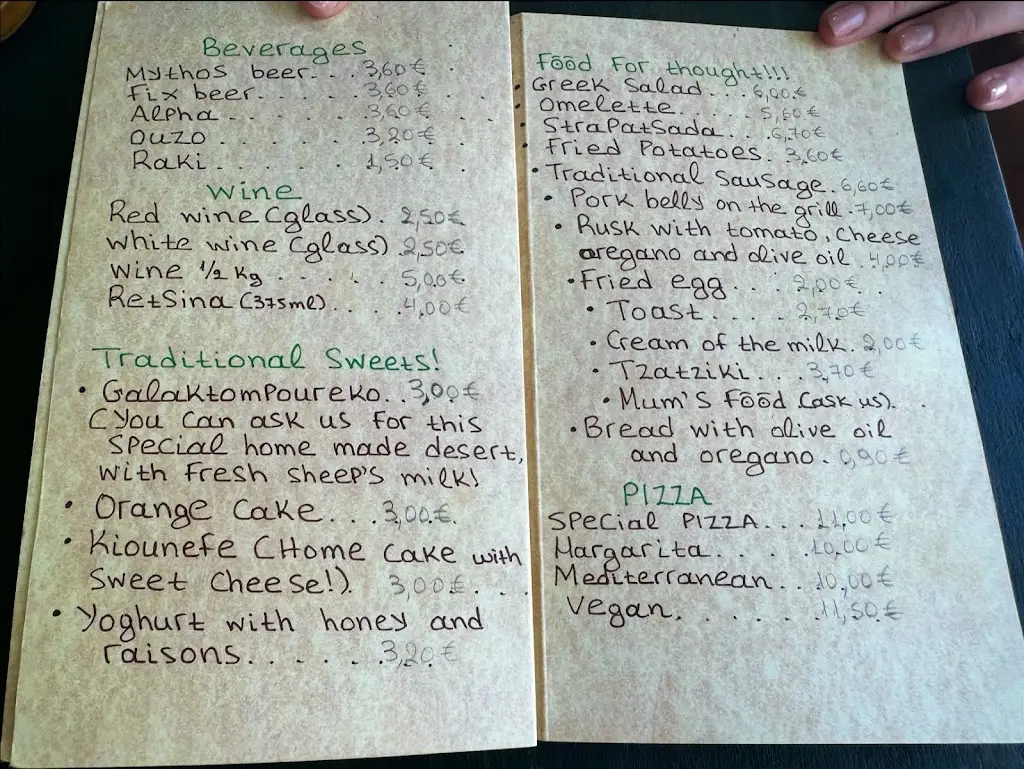 Beverages
Mythos beer... 3,60€
Fix beer..... 3,60€
Alpha...... 3,60€
Ouzo...... 3,20€
Raki...... 1,50€
Wine
Red wine (glass). 2,50€
White wine (glass) 2,50€
Wine 1/2 kg..... 5,00€
Retsina (375ml).... 4,00€
Traditional Sweets!
• Galaktompoureko.. 3,00€
(You can ask us for this
special home made desert,
with fresh sheep's milk!
• Orange Cake... 3,00€.
• Kiounefe (Home Cake with
Sweet Cheese!). 3,00€...
• Yoghurt with honey and
raisons...... 3,20€
Food For thought!!!
• Greek Salad... 6,00€
• Omelette.... 5,60€
• Strapatsada... 6,70€
• Fried Potatoes. 3,60€
• Traditional Sausage. 6,60€
• Pork belly on the grill. 7,00€
• Rusk with tomato, cheese
oregano and olive oil. 4,00€
• Fried egg... 2,00€
• Toast.... 2,70€
• Cream of the milk. 2,00€
• Tzatziki... 3,70€
• Mum's Food (ask us)...
• Bread with olive oil
and oregano. 0,90€
PIZZA
Special PIZZA... 11,00€
Margarita..... 10,00€
Mediterranean.. 10,00€
Vegan...... 11,50€